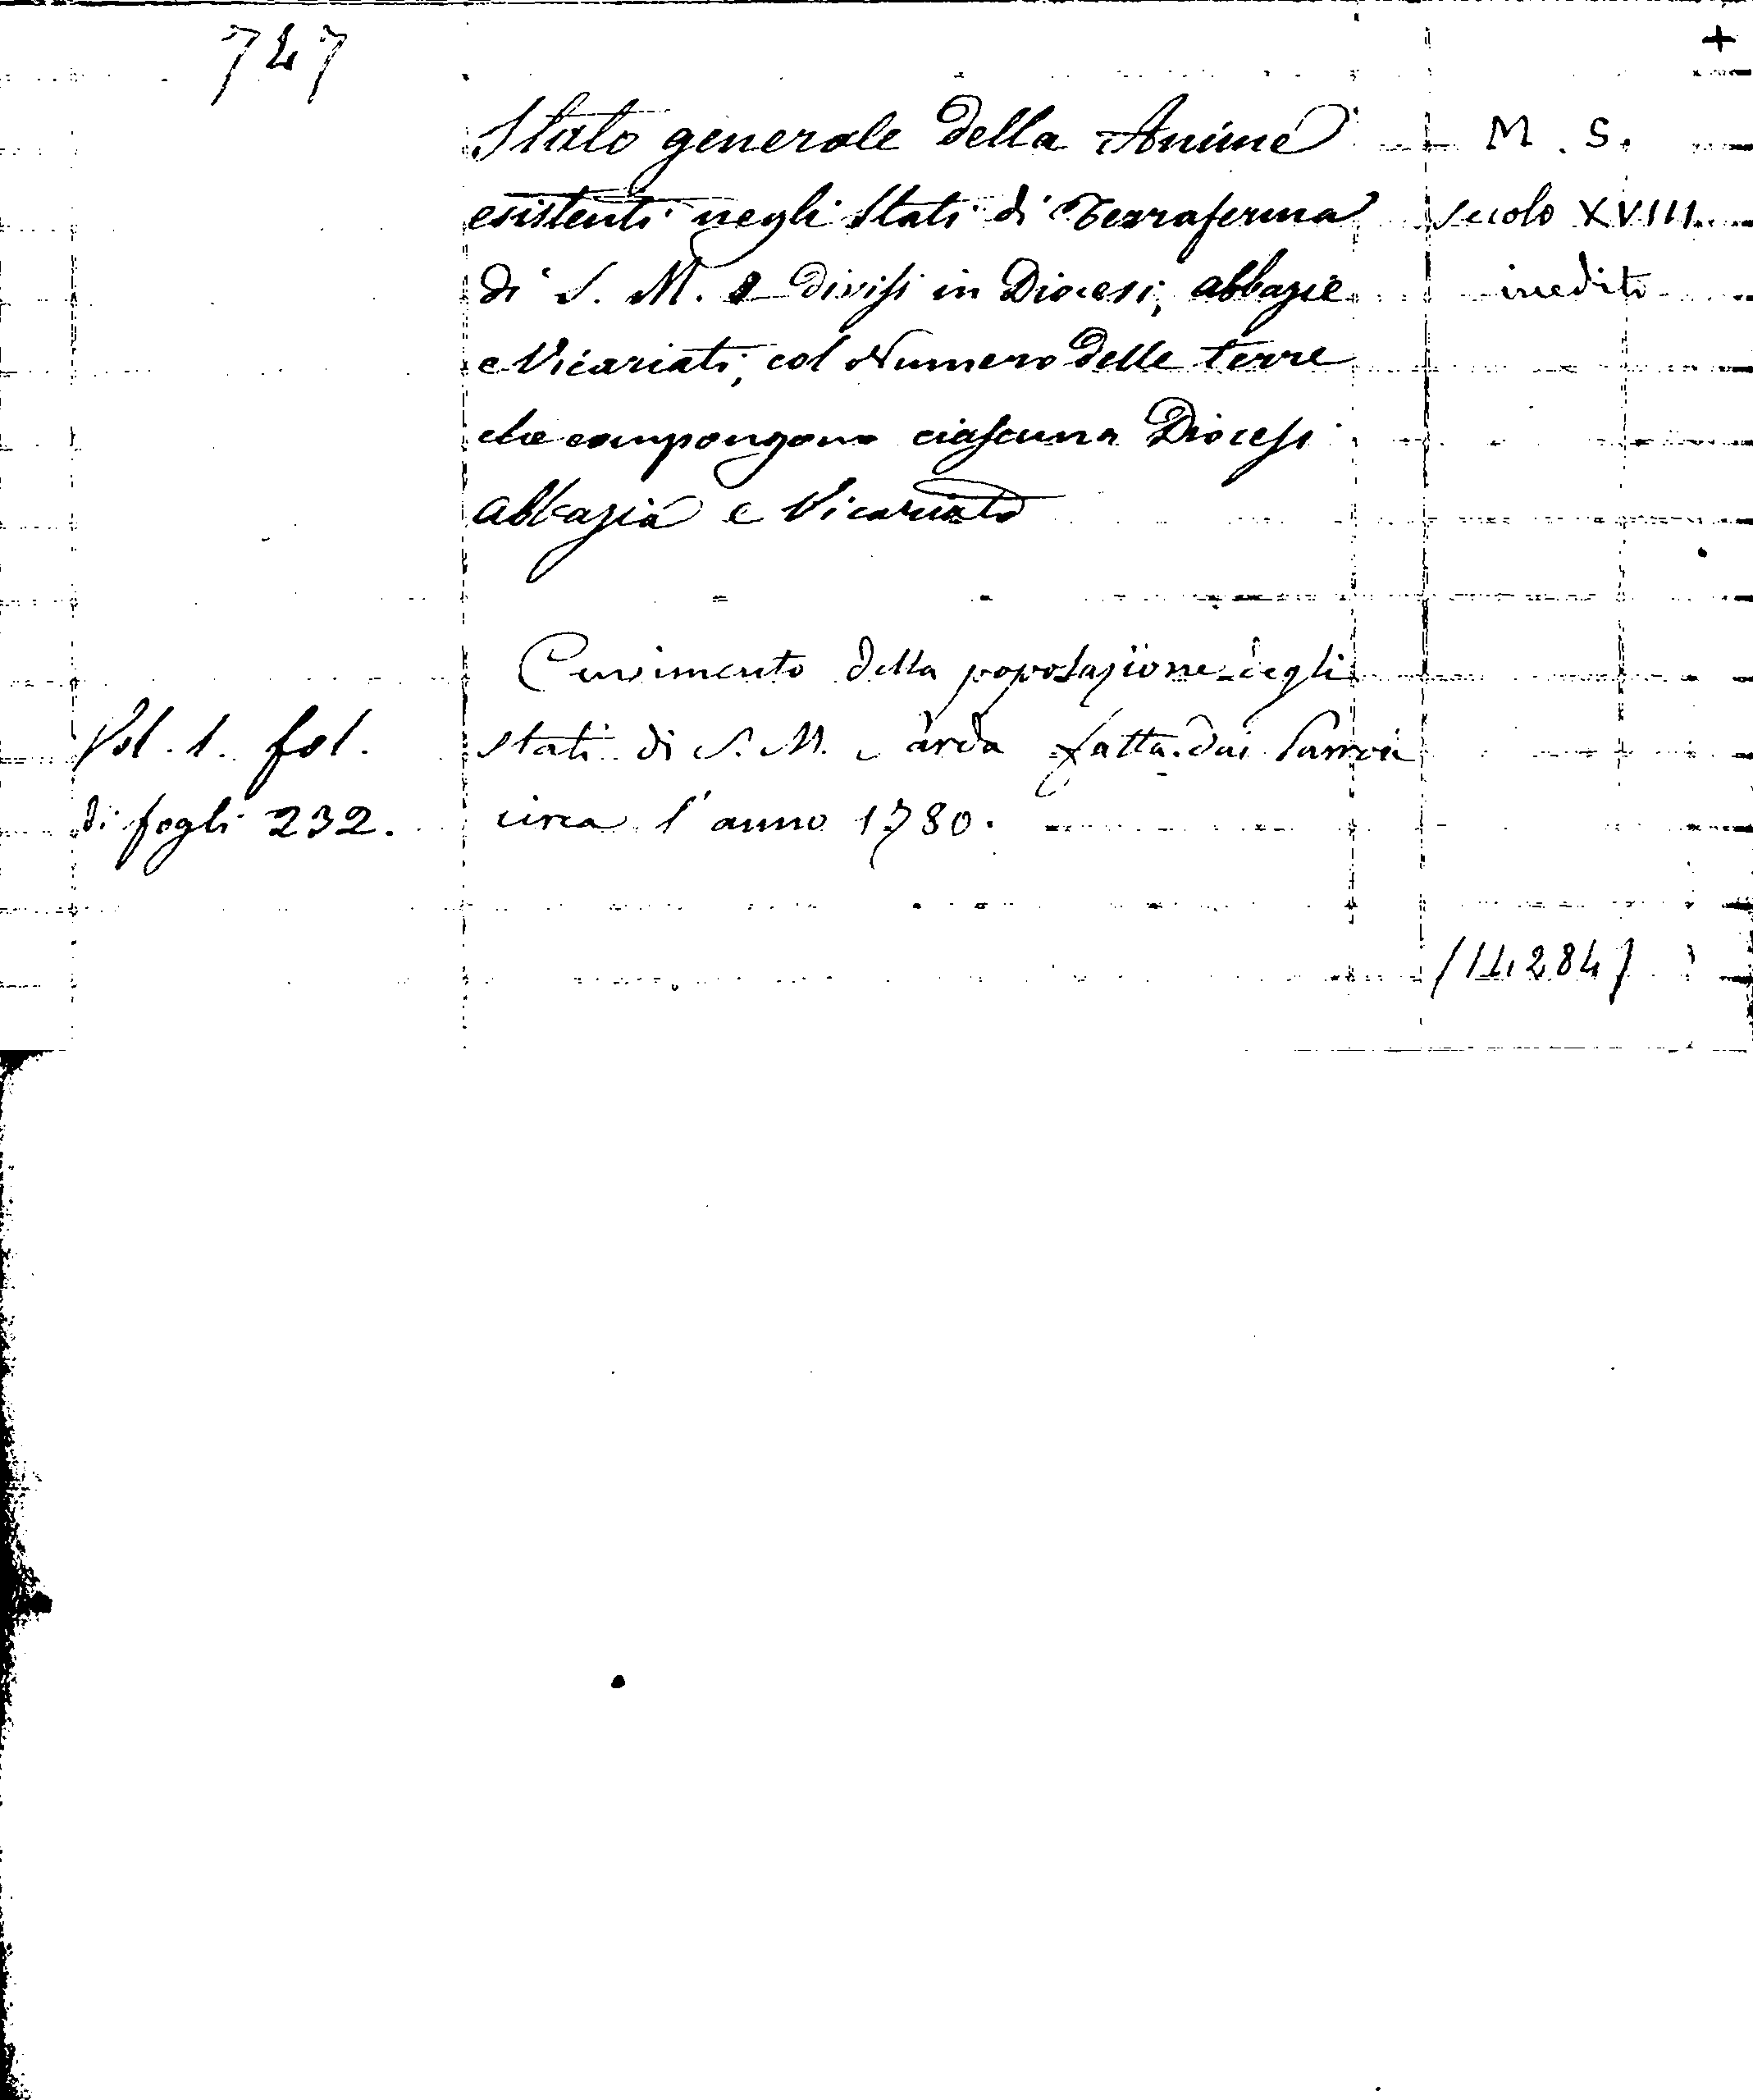 747
+
Stato generale della Anime
esistenti negli Stati di Terraferma
di S. M. divisi in Diocesi, abbazie
e Vicariati, col Numero delle terre
che compongono ciascuna Diocesi
abbazia e Vicariato
M. S.
Secolo XVIII
inedito
Vol. 1. fol.
di fogli 232.
Censimento della popolazione degli
stati di S. M. Sarda fatta dai Parroci
circa l'anno 1780.
(14284)